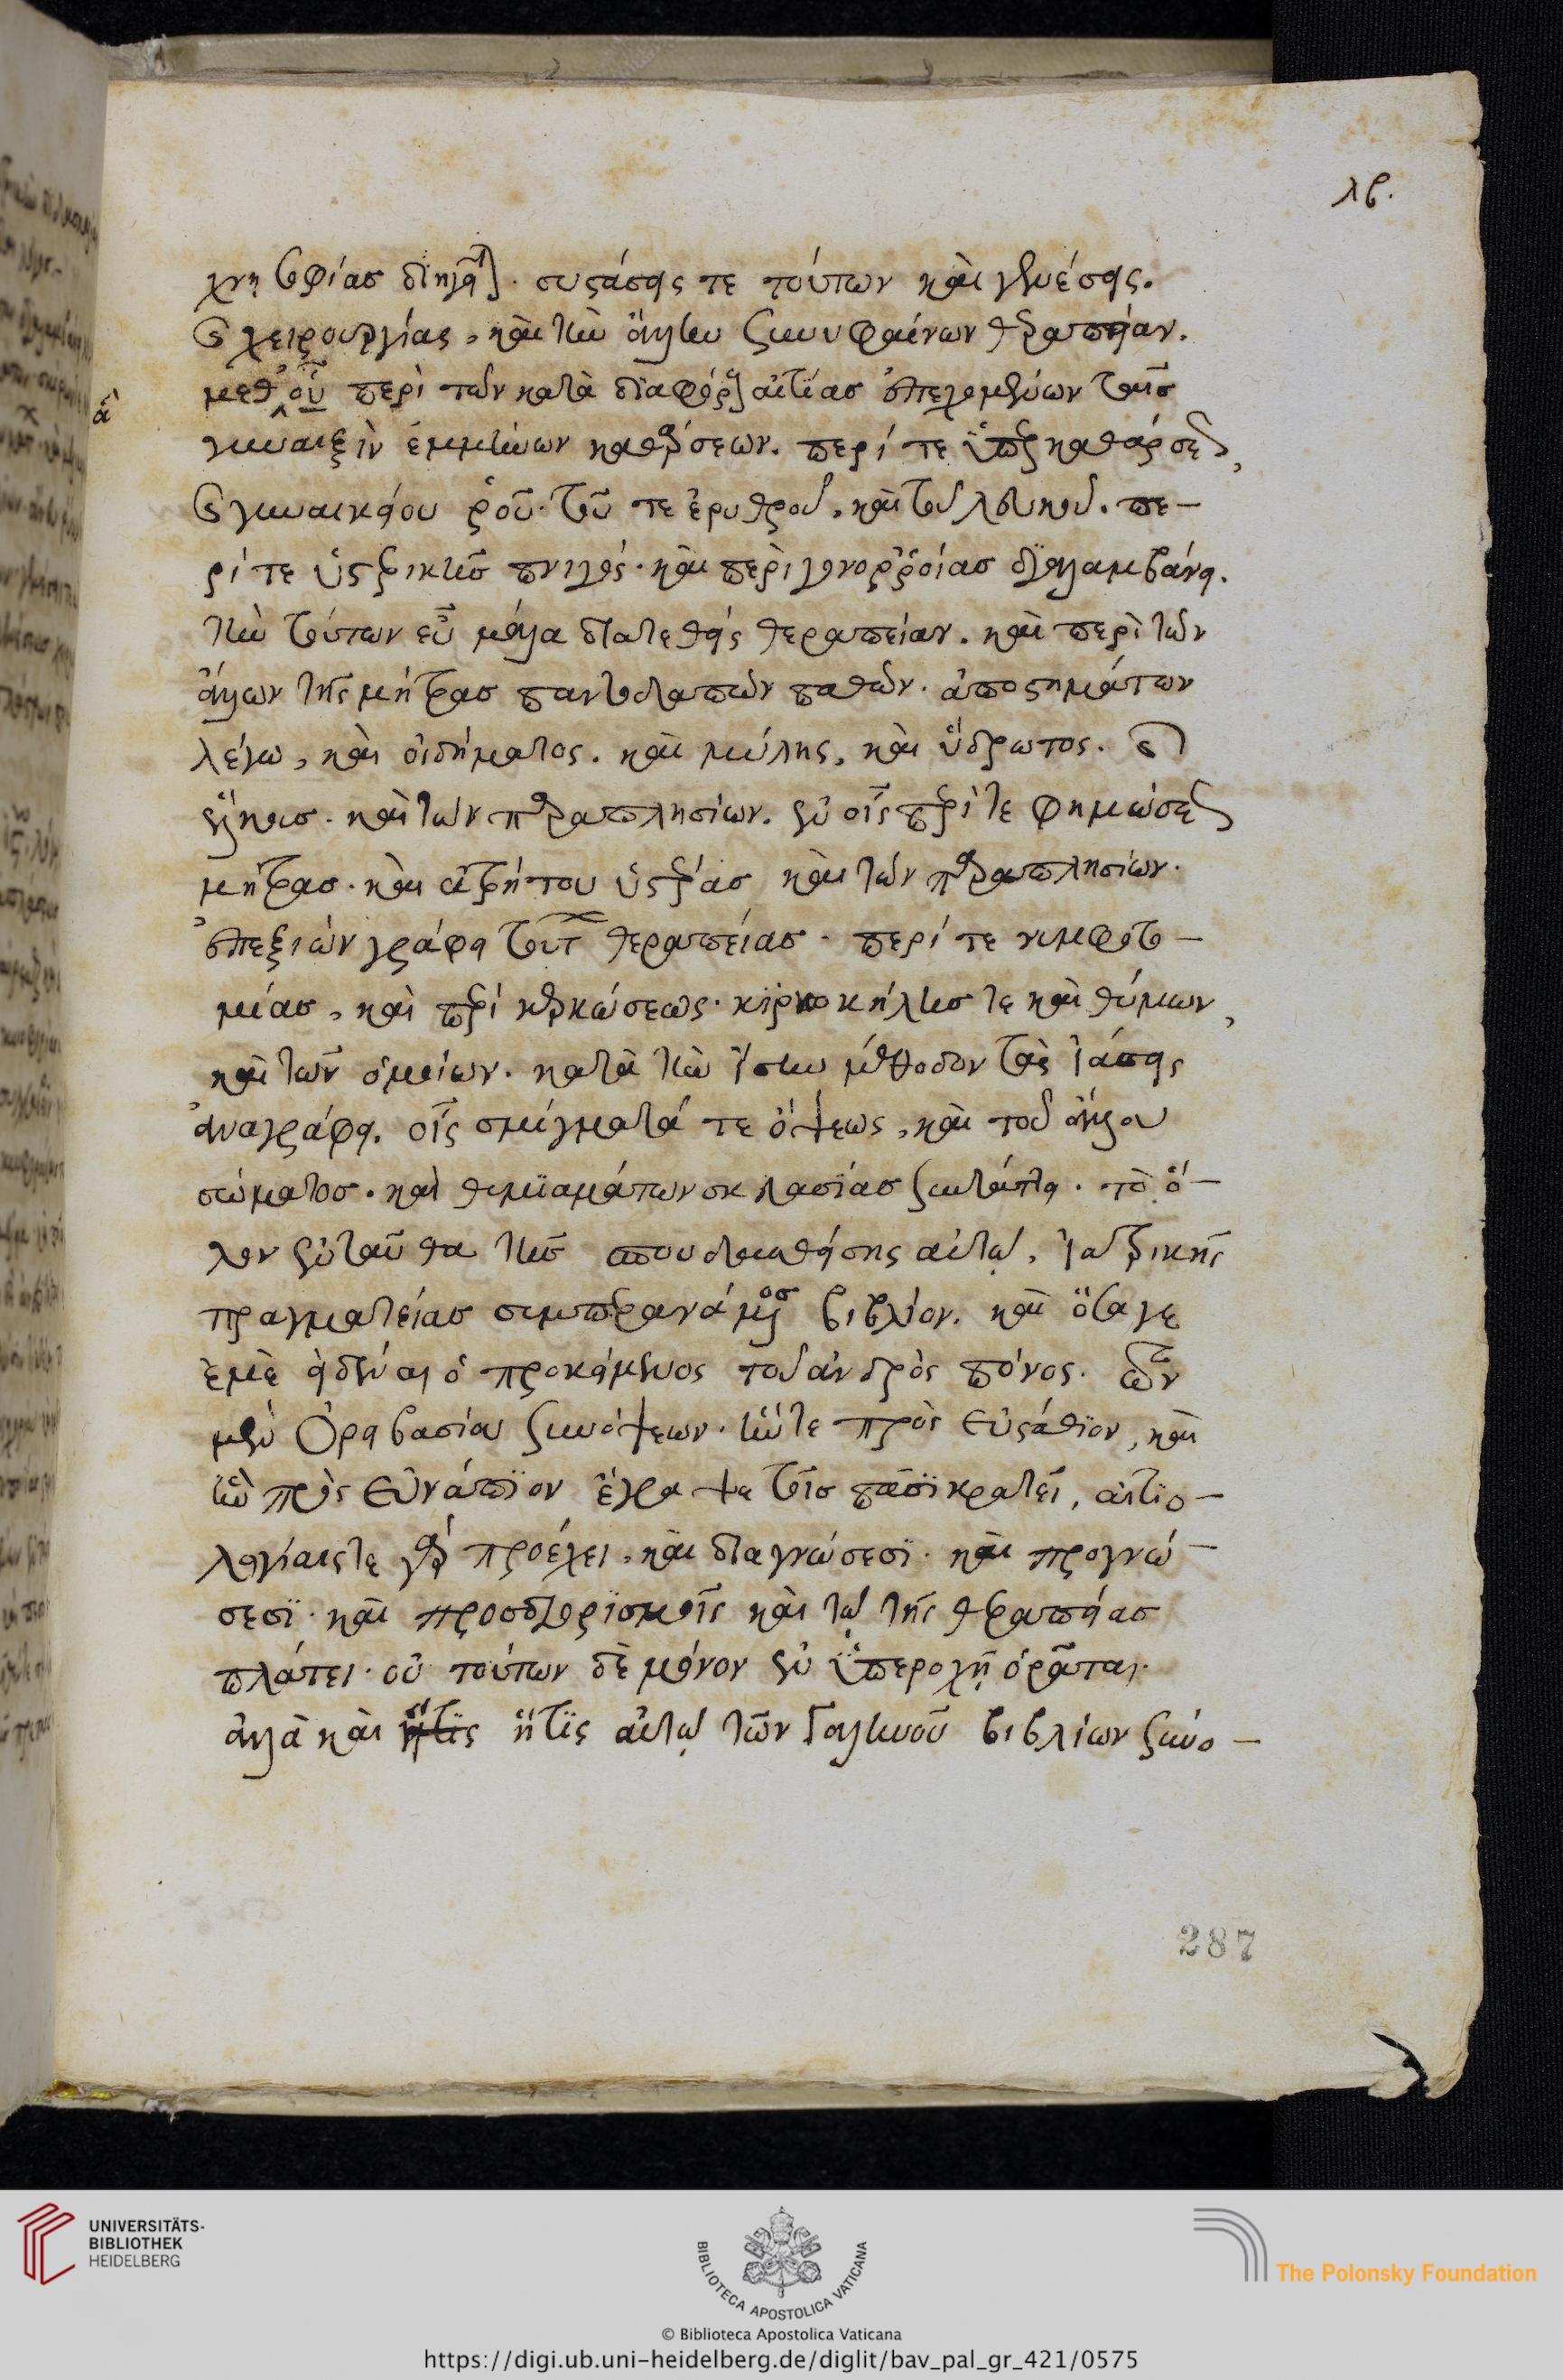 λβ.
χνητοφίας διηγεῖται· συστάσεις τε τούτων καὶ γενέσεις.
καὶ χειρουργίας, καὶ τὴν ἄλλην συνυφαίνων θεραπείαν.
μεθ' οὓ περὶ τῶν κατὰ διαφόρους αἰτίας ἐπεχομένων ταῖς
γυναιξὶν ἐμμήνων καθάρσεων. περί τε ὑπερκαθάρσεως,
καὶ γυναικείου ῥοῦ· τοῦ τε ἐρυθροῦ, καὶ τοῦ λευκοῦ. πε-
ρί τε ὑστερικῆς πνιγός· καὶ περὶ γονορροίας διαλαμβάνει.
τὴν τούτων εὖ μάλα διατεθεὶς θεραπείαν. καὶ περὶ τῶν
ἄλλων τῆς μήτρας παντοδαπῶν παθῶν. ἀποστημάτων
λέγω, καὶ οἰδήματος. καὶ μύλης, καὶ ὕδρωπος. καὶ
ἕλκους. καὶ τῶν παραπλησίων. ἐν οἷς περί τε φημώσεως
μήτρας. καὶ ἀτρήτου ὑστέρας καὶ τῶν παραπλησίων.
ἐπεξιὼν γράφει τούτων θεραπείας. περί τε νυμφοτο-
μίας, καὶ περὶ κερκώσεως. κιρσοκήλης τε καὶ θύμων,
καὶ τῶν ὁμοίων. κατὰ τὴν ἴσην μέθοδον τὰς ἰάσεις
ἀναγράφει. οἷς σμίγματά τε ὄψεως, καὶ τοῦ ἄλλου
σώματος. καὶ θυμιαμάτων σκευασίας συντάττει. τὸ ὅ-
λον ἐνταῦθα τῆς σπουδασθείσης αὐτῷ, ἰατρικῆς
πραγματείας συμπερανάμενος βιβλίον. καὶ ὅσα γε
ἐμὲ εἰδέναι ὁ προκείμενος τοῦ ἀνδρὸς πόνος. ὧν
μὲν Ὀρειβασίου συνόψεων. ἥν τε πρὸς Εὐστάθιον, καὶ
ἣν πρὸς Εὐνάπιον ἔγραψε τοῖς πᾶσι κρατεῖ, αἰτιο-
λογίαις τε γὰρ προέχει, καὶ διαγνώσεσι. καὶ προγνώ-
σεσι. καὶ προσδιορισμοῖς καὶ τῷ τῆς θεραπείας
πλάτει. οὐ τούτων δὲ μόνον ἐν ὑπεροχῇ ὁρᾶται.
ἀλλὰ καὶ ἥτις ἥτις αὐτῷ τῶν Γαληνοῦ βιβλίων συνο-
287
UNIVERSITÄTS-
BIBLIOTHEK
HEIDELBERG
BIBLIOTECA APOSTOLICA VATICANA
© Biblioteca Apostolica Vaticana
The Polonsky Foundation
https://digi.ub.uni-heidelberg.de/diglit/bav_pal_gr_421/0575